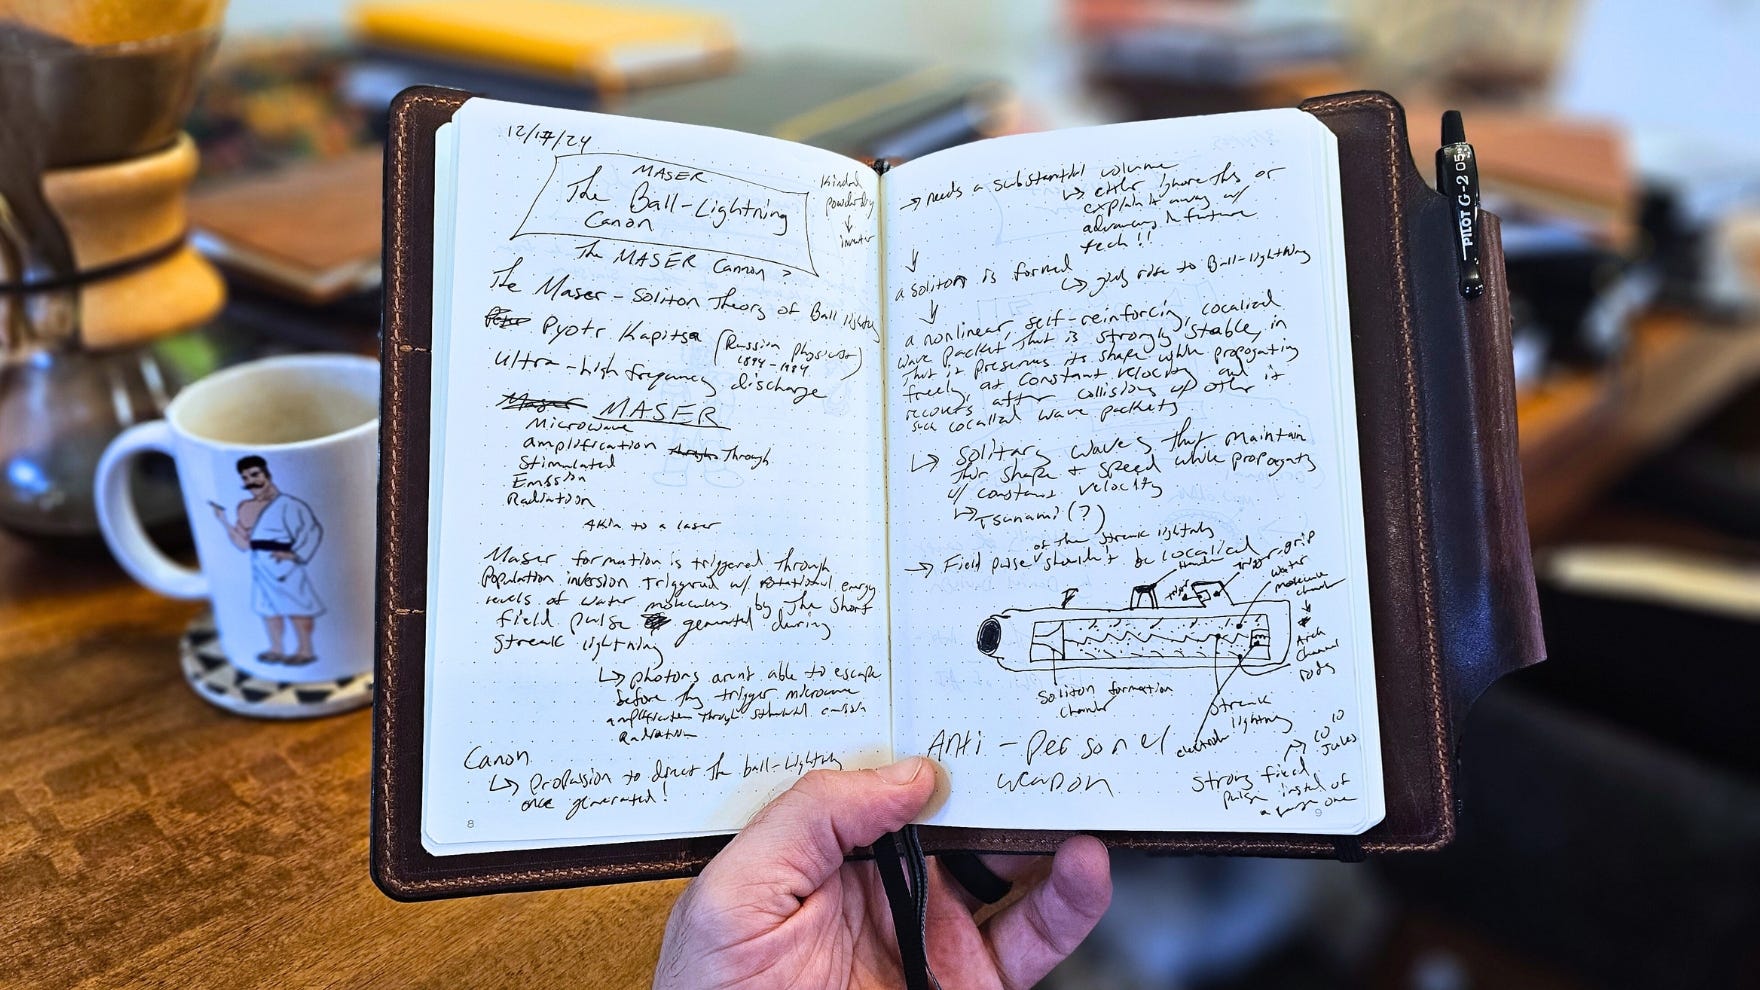 12/17/24
MASER
The Ball-Lightning
Canon
The MASER Cannon ?
Kindal
powderdry
inventor
The Maser-Soliton Theory of Ball lightning
Pyotr Kapitsa (Russian physicist)
1894-1984
Ultra-high frequency discharge
MASER
Microwave
Amplification Through
Stimulated
Emission
Radiation
Akin to a laser
Maser formation is triggered through
population inversion triggered w/ rotational energy
levels of water molecules by the short
field pulse generated during
streak lightning
photons arent able to escape
before they trigger microwave
amplification through stimulated emission
Radiation
Canon
propulsion to direct the ball-lightning
once generated!
8
→ needs a substantial volume
either ignore this or
explain it away w/
advancing & future
tech!!
a soliton is formed
gives rise to Ball-lightning
a nonlinear, self-reinforcing, localized
wave packet that is strongly stable, in
that it preserves its shape while propogating
freely, at constant velocity and it
recovers after collisions w/ other
such localized wave packets
Solitary waves that maintain
their shape & speed while propogating
w/ constant velocity
Tsunami (?)
of the streak lightning
→ Field pulse shouldn't be localized
Handle
Trigger grip
Trigger
water
molecule
chamber
Arch
Channel
Body
Soliton formation
Chamber
Streak
lightning
electrode
Anti-personel
weapon
10^10
Joules
Strong field
pulse instead of
a large one
9
PILOT G-2 05